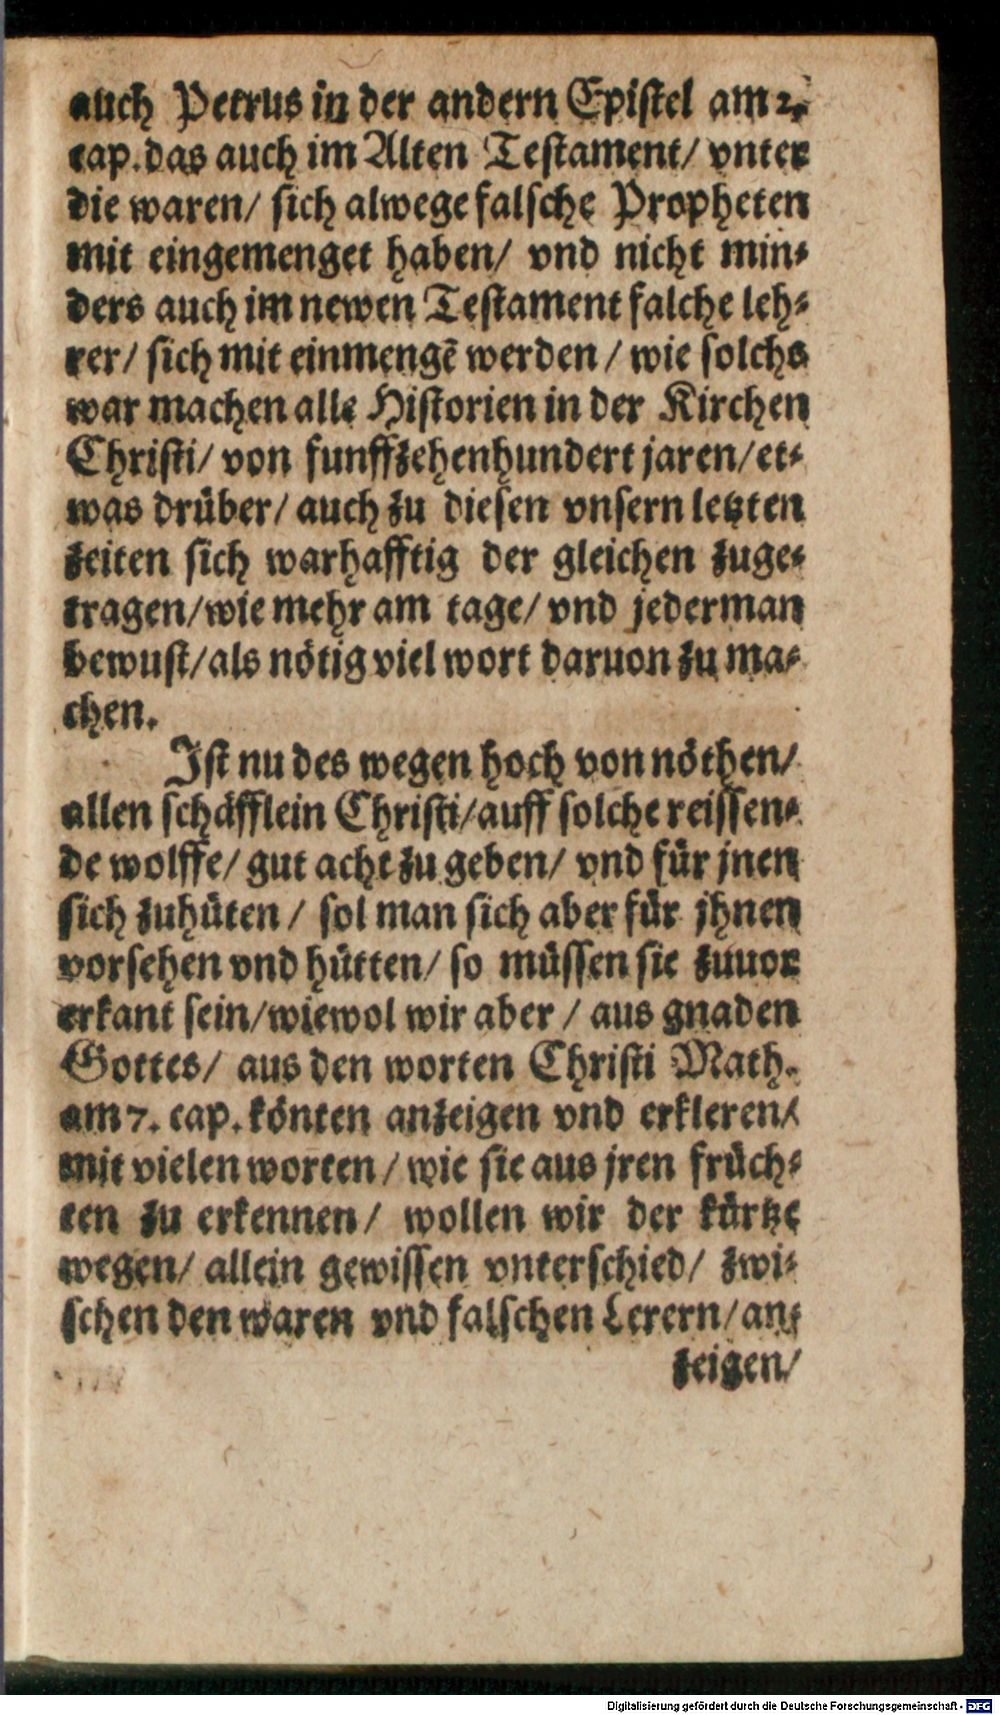 auch Petrus in der andern Epistel am 2.
cap. das auch im Alten Testament/ vnter
die waren/ sich alwege falsche Propheten
mit eingemenget haben/ vnd nicht min-
ders auch im newen Testament falche leh-
rer/ sich mit einmengẽ werden/ wie solchs
war machen alle Historien in der Kirchen
Christi/ von funffzehenhundert jaren/ et-
was drüber/ auch zu diesen vnsern letzten
zeiten sich warhafftig der gleichen zuge-
tragen/ wie mehr am tage/ vnd jederman
bewust/ als nötig viel wort daruon zu ma-
chen.
Ist nu des wegen hoch von nöthen/
allen schäfflein Christi/ auff solche reissen-
de wolffe/ gut acht zu geben/ vnd für jnen
sich zuhüten/ sol man sich aber für jhnen
vorsehen vnd hütten/ so müssen sie zuuor
erkant sein/ wiewol wir aber/ aus gnaden
Gottes/ aus den worten Christi Math.
am 7. cap. könten anzeigen vnd erkleren/
mit vielen worten/ wie sie aus jren früch-
ten zu erkennen/ wollen wir der kürtze
wegen/ allein gewissen vnterschied/ zwi-
schen den waren vnd falschen Lerern/ an-
zeigen/
Digitalisierung gefördert durch die Deutsche Forschungsgemeinschaft - DFG